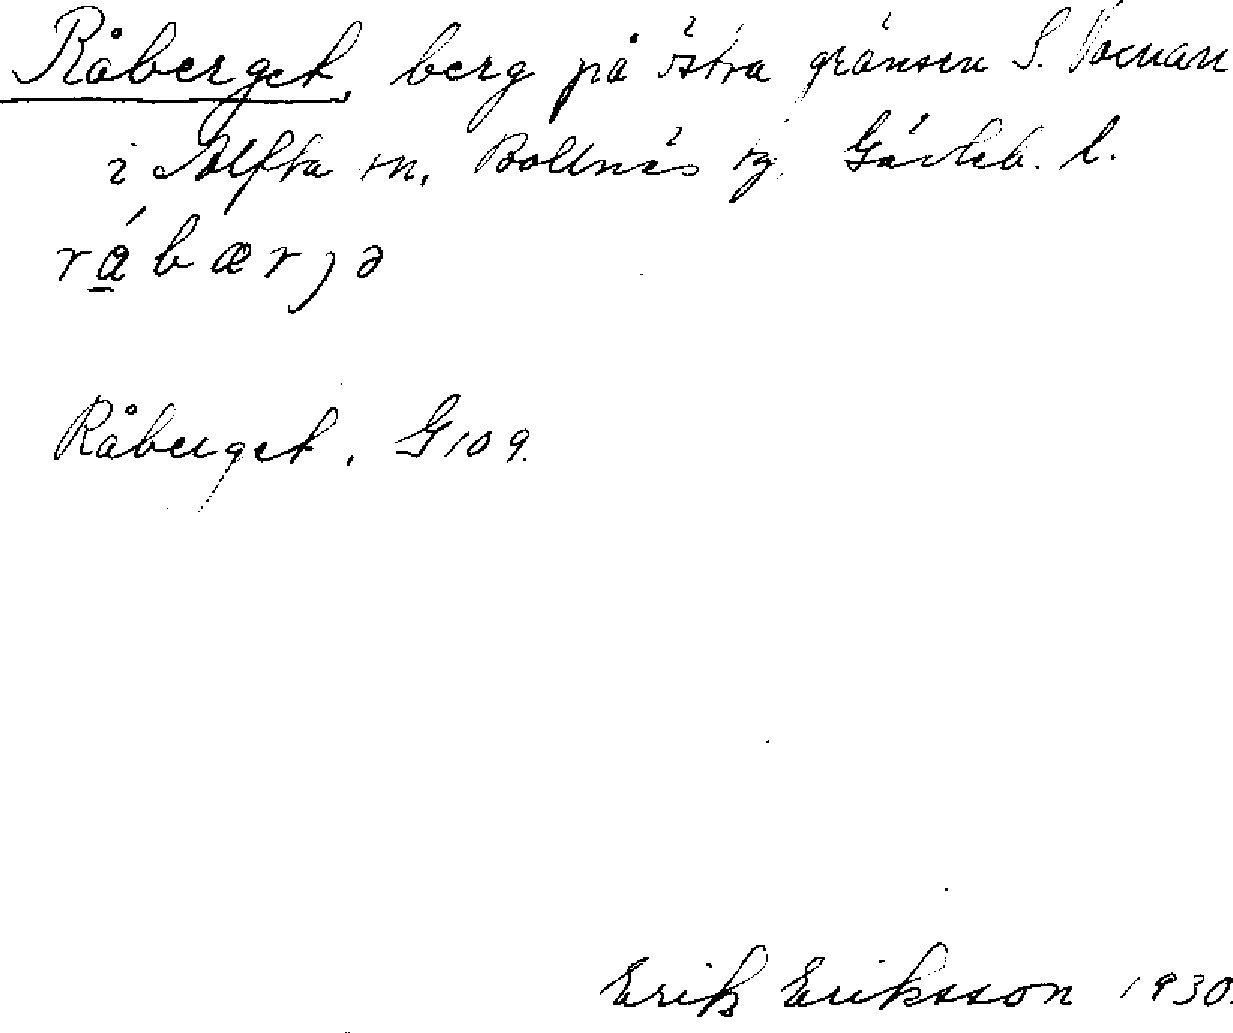 Råberget, berg på östra gränsen S. Voxnan
i Alfta sn, Bollnäs tg, Gävleb. l.
råbærjə
Råberget, G 109.
Erik Eriksson 1930.